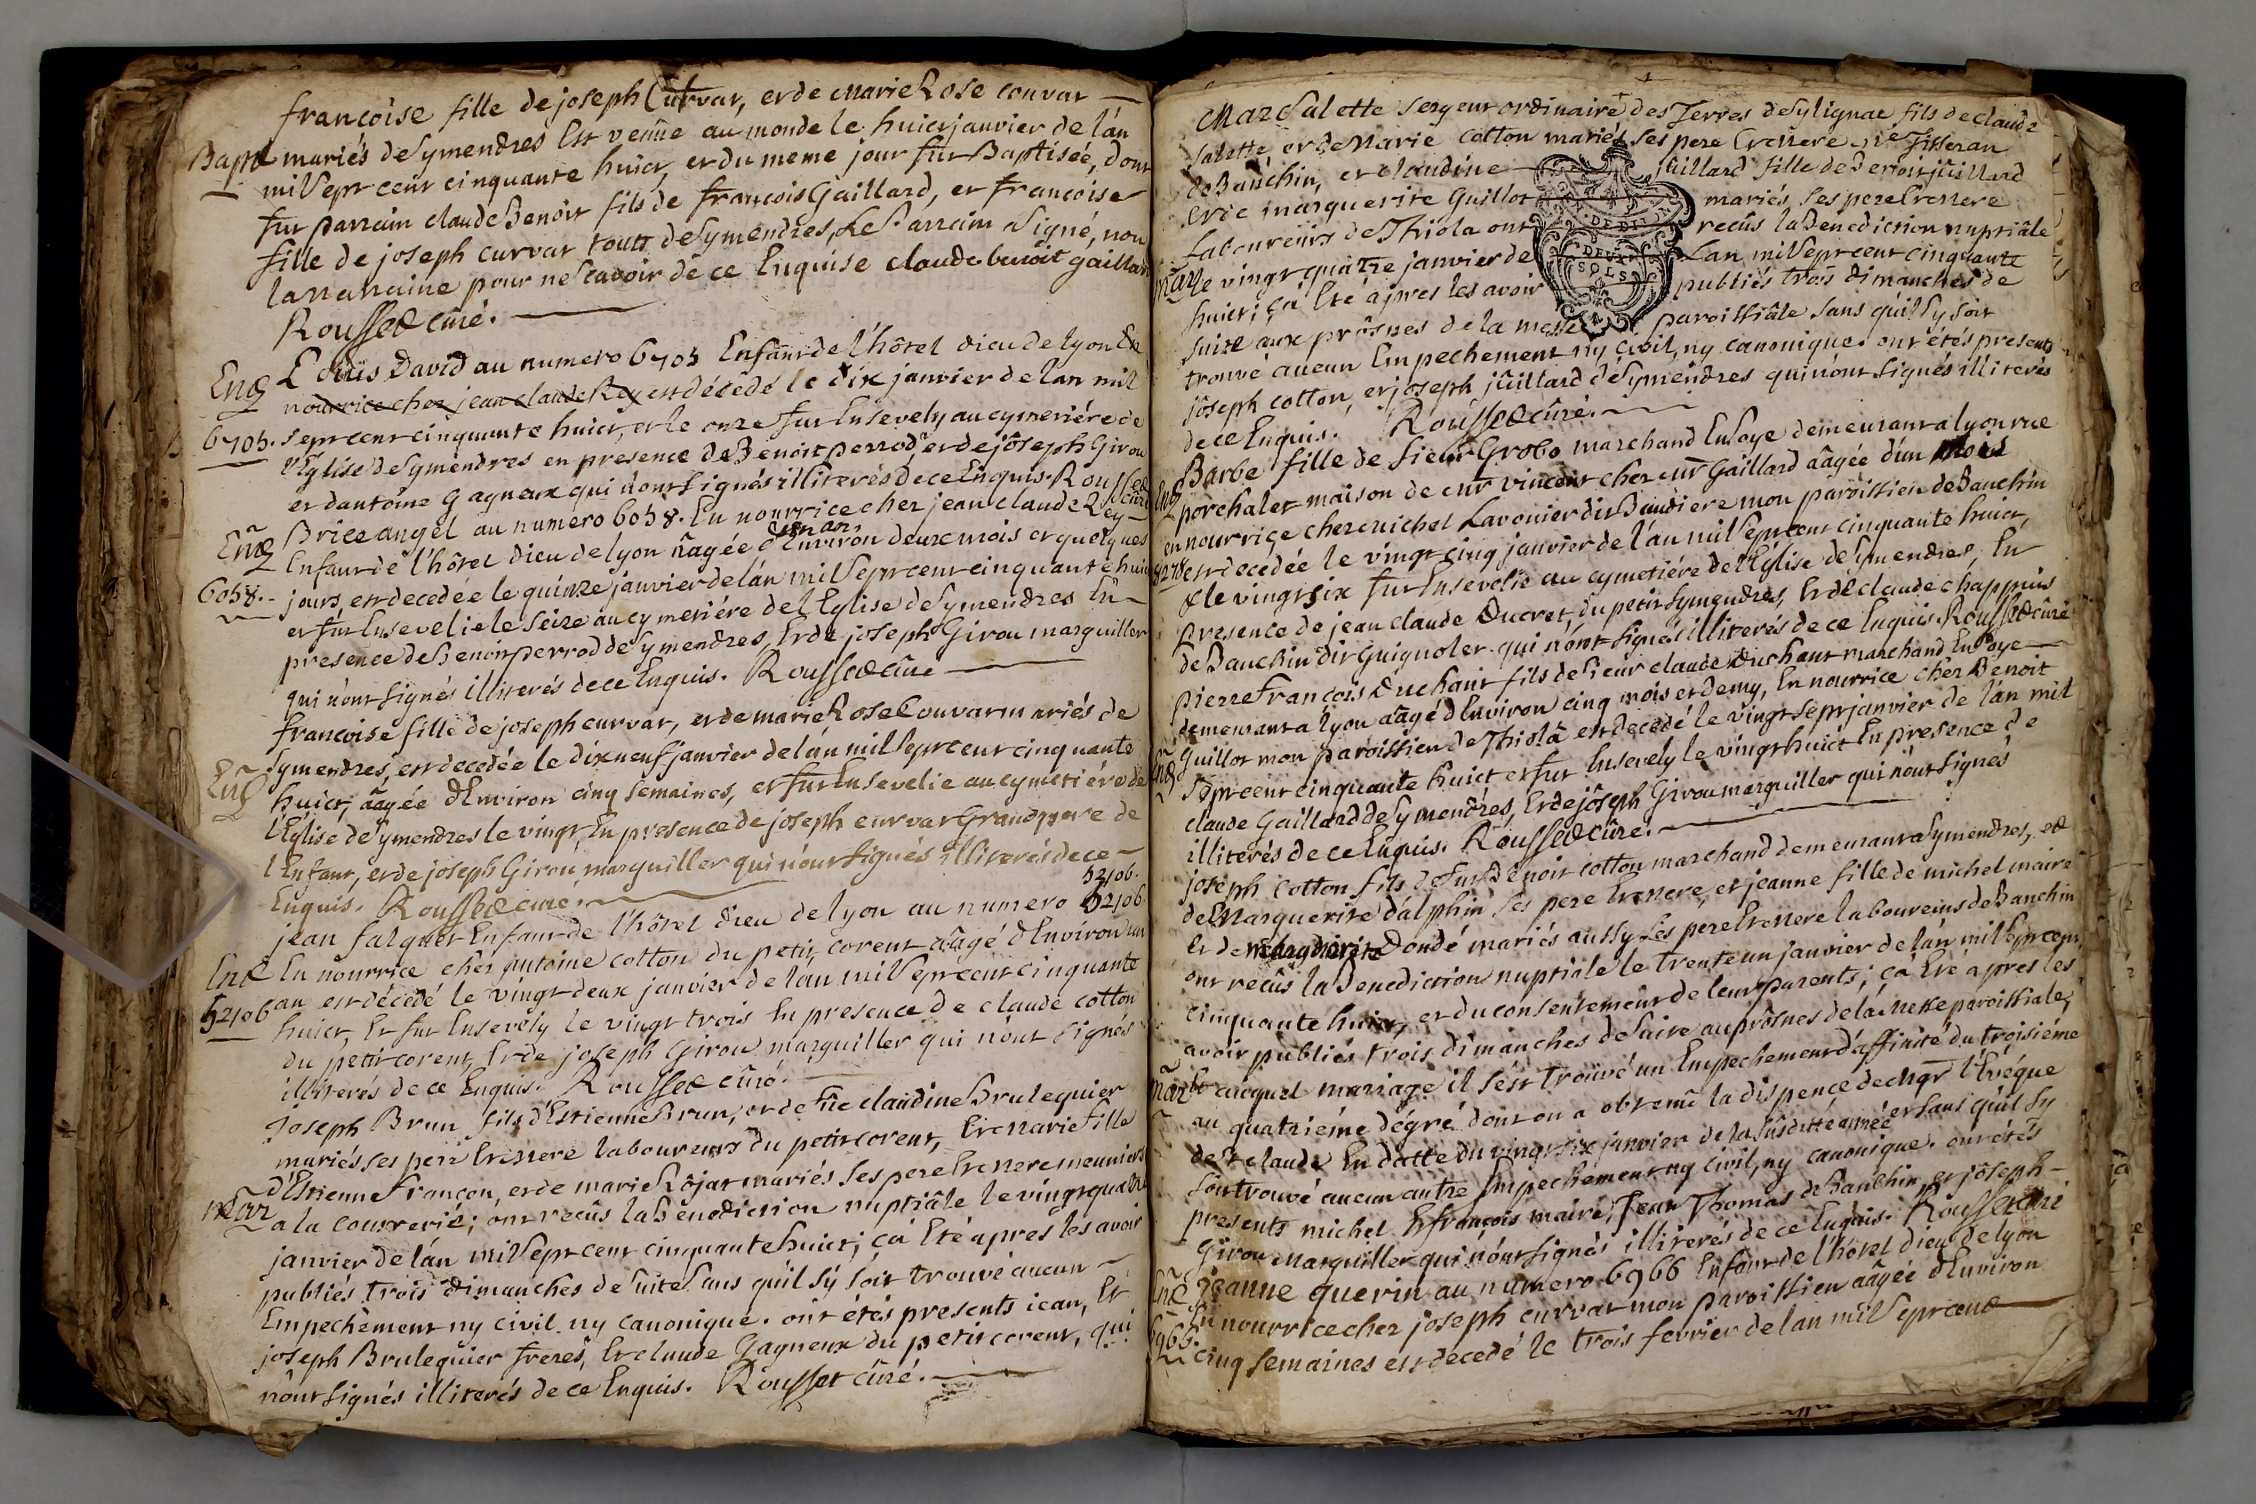 françoise fille de joseph Curvat, et de Marie Rose couvat
Bapte mariés de Symendres Est venüe au monde le huict janvier de l'án
mil Sept cent cinquante huict, et du meme jour fut Baptisée, dont
fut parrain claude Benoit fils de françois Gaillard, et françoise
fille de joseph curvat touts de Symendres, Le Parrain Signé, non
la marraine pour ne Scavoir de ce Enquise claude benoit gaillard
Rousset cûré.
Ent Loüis David au numero 6703 Enfant de l'hôtel dieu de lyon En
nourrice chez jean claude Rey est décédé le dix janvier de lan mil
6703. sept cent cinquante huict, et le onze fut Ensevely au cymetiére de
l'Eglise de Symendres en presence de Benoit perrod, et de jôseph Girou
et dantoine Gagneux qui n'ont signés illiterés de ce Enquis. Rousset
cûré
Ent Brice angel au numero 6058. En nourrice chez jean claude Rey
un an,
Enfant de l'hôtel dieu de lyon âagée d'Environ deux mois et quelques
6058. jours, est decedée le quinze janvier de lán mil Sept cent cinquante huict
et fut Ensevelie le Seize au cymetiére de l'Eglise de Symendres En
presence de Benoit perrod de Symendres, Et de joseph Girou marguiller
qui n'ont signés illiterés de ce Enquis. Rousset cûré
françoise fille de joseph curvat, et de marie Rose Couvat mariés de
Symendres, est decedée le dix neuf janvier de lán mil Sept cent cinquante
Ent huict, âagée d'Environ cinq semaines, et fut Ensevelie au cymetiére de
l'Eglise de Symendres le vingt, En presence de joseph curvat Grand pere de
l'Enfant, et de joseph Girou marguiller qui n'ont signés illiterés de ce
Enquis. Rousset curé. 52106.
jean falquet Enfant de l'hôtel dieu de lyon au numero 52106
Ent En nourrice chez antoine cotton du petit corent âagé d'Environ un
52106 an est décédé le vingt deux janvier de lan mil Sept cent cinquante
huict, Et fut Ensevely le vingt trois En presence de claude cotton
du petit corent, Et de joseph Girou marguiller qui n'ont signés
illiterés de ce Enquis. Rousset cûré.
Joseph Brun fils d'Estienne Brun, et de fûe claudine Brulequier
mariés ses pere Et mere laboureurs du petit corent, Et marie fille
d'Estienne françon, et de marie Rôjat mariés ses pere Et mere meuniers
Mar a la Couverié; ont recûs la Bénediction nuptiâle le vingt quatre
janvier de lán mil Sept cent cinquante huict; ça Eté apres les avoir
publiés trois dimanches de suite Sans qu'il sy soit trouvé aucun
Empechement ny civil ny canonique. ont étés presents jean, Et
joseph Brulequier freres, Et claude Gagneux du petit corent, qui
n'ont signés illiterés de ce Enquis. Rousset cûré.
Marc Salette sergent ordinaire des Terres de Sylignac fils de claude
Salette, et de Marie cotton mariés ses pere Et mere, Tisseran
de Banchin, et claudine juillard fille de Benoit juillard
Et de marguerite Guillot mariés, ses pere Et mere
Laboureurs de Thiola ont recûs la Benediction nuptiâle
Mar le vingt quatre janvier de Lan mil Sept cent cinquante
huict; ça Eté apres les avoir publiés trois dimanches de
suite aux prôsnes de la messe paroissiâle sans qu'il sy soit
trouvé aucun Empechement ny civil, ny canonique. ont étés presents
jôseph cotton, et joseph juillard de Symendres qui n'ont signés illiterés
de ce Enquis. Rousset cûré.
DEUX SOLS
Barbe fille de sieur Grobo marchand En soye demeurant a lyon rue
Ent porchalet maison de mr vincent chez mr Gaillard âagée d'un mois
en nourrice chez michel Lavonier dit Baudiere mon paroissien de Banchin
8278 est decedée le vingt cinq janvier de l'án mil Sept cent cinquante huict,
& le vingt six fut Ensevelie au cymetiére de l'Eglise de Symendres, En
presence de jean claude Ducret, du petit Symendres, Et de claude chappuis
de Banchin dit Guignoler qui n'ont signés illiterés de ce Enquis. Rousset cûré
pierre françois Duchant fils de sieur claude Duchant marchand En soye
demeurant a lyon âagé d'Environ cinq mois et demy, En nourrice chez Benoit
Ent Guillot mon paroissien de Thiolâ est decedé le vingt sept janvier de l'án mil
Sept cent cinquante huict et fut Ensevely le vingt huict En presence de
claude Gaillard de Symendres, Et de jôseph Girou marguiller qui n'ont signés
illiterés de ce Enquis. Rousset cûré.
joseph cotton fils de fut Benoit cotton marchand demeurant a Symendres, et
de Marguerite dalphin ses pere Et mere, et jeanne fille de michel maire
Et de Marguerite Dondé mariés aussy ses pere Et mere laboureurs de Banchin
ont recûs la Benediction nuptiale le trente un janvier de lán mil Sept cent
cinquante huict, et du consentement de leurs parents; ça Eté apres les
avoir publiés trois dimanches de suite au prôsnes de la messe paroissiale,
Mar au cuquel mariage il s'est trouvé un Empechement d'affinité du troisiéme
au quatriéme dégré dont on a obtenû la dispence de mgr l'Evéque
de St claude En datte du vingt six janvier de la susditte année et sans qu'il sy
soit trouvé aucun autre Empechement ny civil, ny canonique. ont étés
presents michel Et françois maire, Jean Thomas de Banchin et jôseph
Girou Marguiller qui n'ont signés illiterés de ce Enquis. Rousset curé
Ent jeanne querin au numero 6966 Enfant de l'hôtel dieu de lyon
En nourrice chez joseph curvat mon paroissien âagée d'Environ
6966. cinq semaines est decedé le trois fevrier de lan mil Sept cent